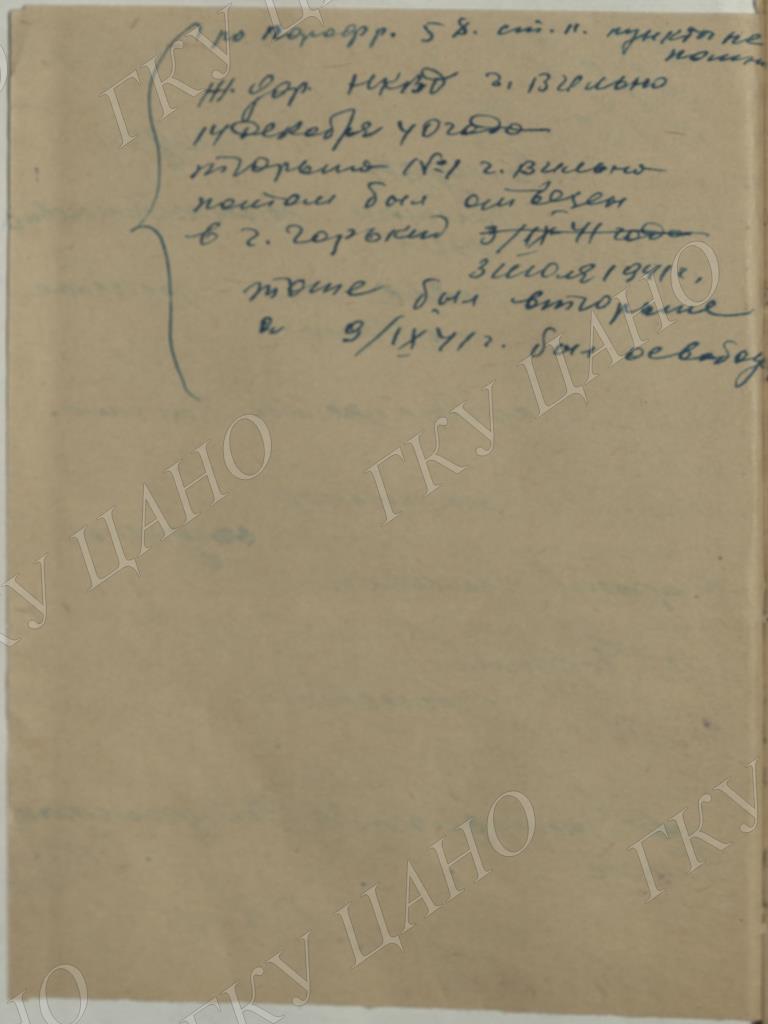 по парагр. 58. ст. п. пункты не
помн
Ж. дор НКВД г. Вильно
14 декабря 40 года
тюрьма №1 г. Вильно
потом был отвезен
в г. Горький 3/IX 41 года
3 июля 1941 г.
тоже был в тюрьме
а 9/IX 41 г. был освобод
ГКУ ЦАНО
ГКУ ЦАНО
ГКУ ЦАНО
ГКУ ЦАНО
ГКУ